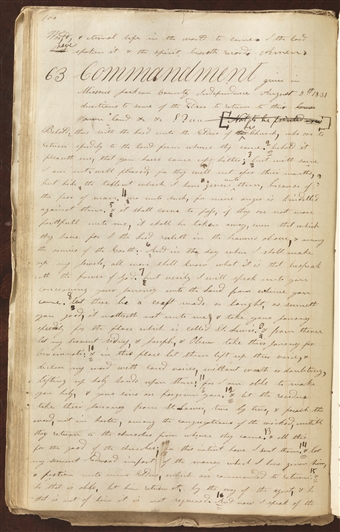 & eternal life in the world to come I the Lord
have spoken it & the spirit beareth record Amen
63 Commandment given in
Missouri Jackson County Independence August 8th 1831
directions to some of the Elders to return to their
own land &c &c
Behold thus saith the Lord unto the Elders of this Church, who are to
return speedily to the land from whence they came behold it
pleaseth me, that you have came up hither 2 but with some
I am not well pleased for they will not open their mouths,
but hide the tallent which I have given them, because of
the fear of man. wo unto such, for mine anger is kindled
against them. & it shall come to pass, if they are not more
faithfull unto me, it shall be taken away, even that which
they have for I the Lord ruleth in the heavens above, & among
the armies of the Earth. & in the day when I shall make
up my jewels, all men shall know what it is that bespeak
eth the power of God. 7 but verily I will speak unto you
concerning your journey unto the land from whence you
came. let there be a craft made or bought, as seemeth
you good, it mattereth not unto me, & take your journey
speedily for the place which is called St. Louis. & from thence
let my servant Sidney, & Joseph, & Oliver take their journey for
Cincinnati 10 & in this place let them lift up their voice, &
declare my word with loud voices, without wrath or doubting,
lifting up holy hands upon them. for I am able to make
you holy, & your sins are forgiven you. & let the residue
take their journey from St. Louis, two by two, & preach the
word, not in haste, among the congregations of the wicked, untill
they return to the churches from whence they came. 13 & all this
for the good of the churches, for this intent have I sent them. & let
my servant Edward impart of the money which I have given him,
a portion unto mine Elders, which are commanded to return.
he that is able, let him return it, by the way of the agent, & he
that is not of him it is not required. 16 And now I speak of the